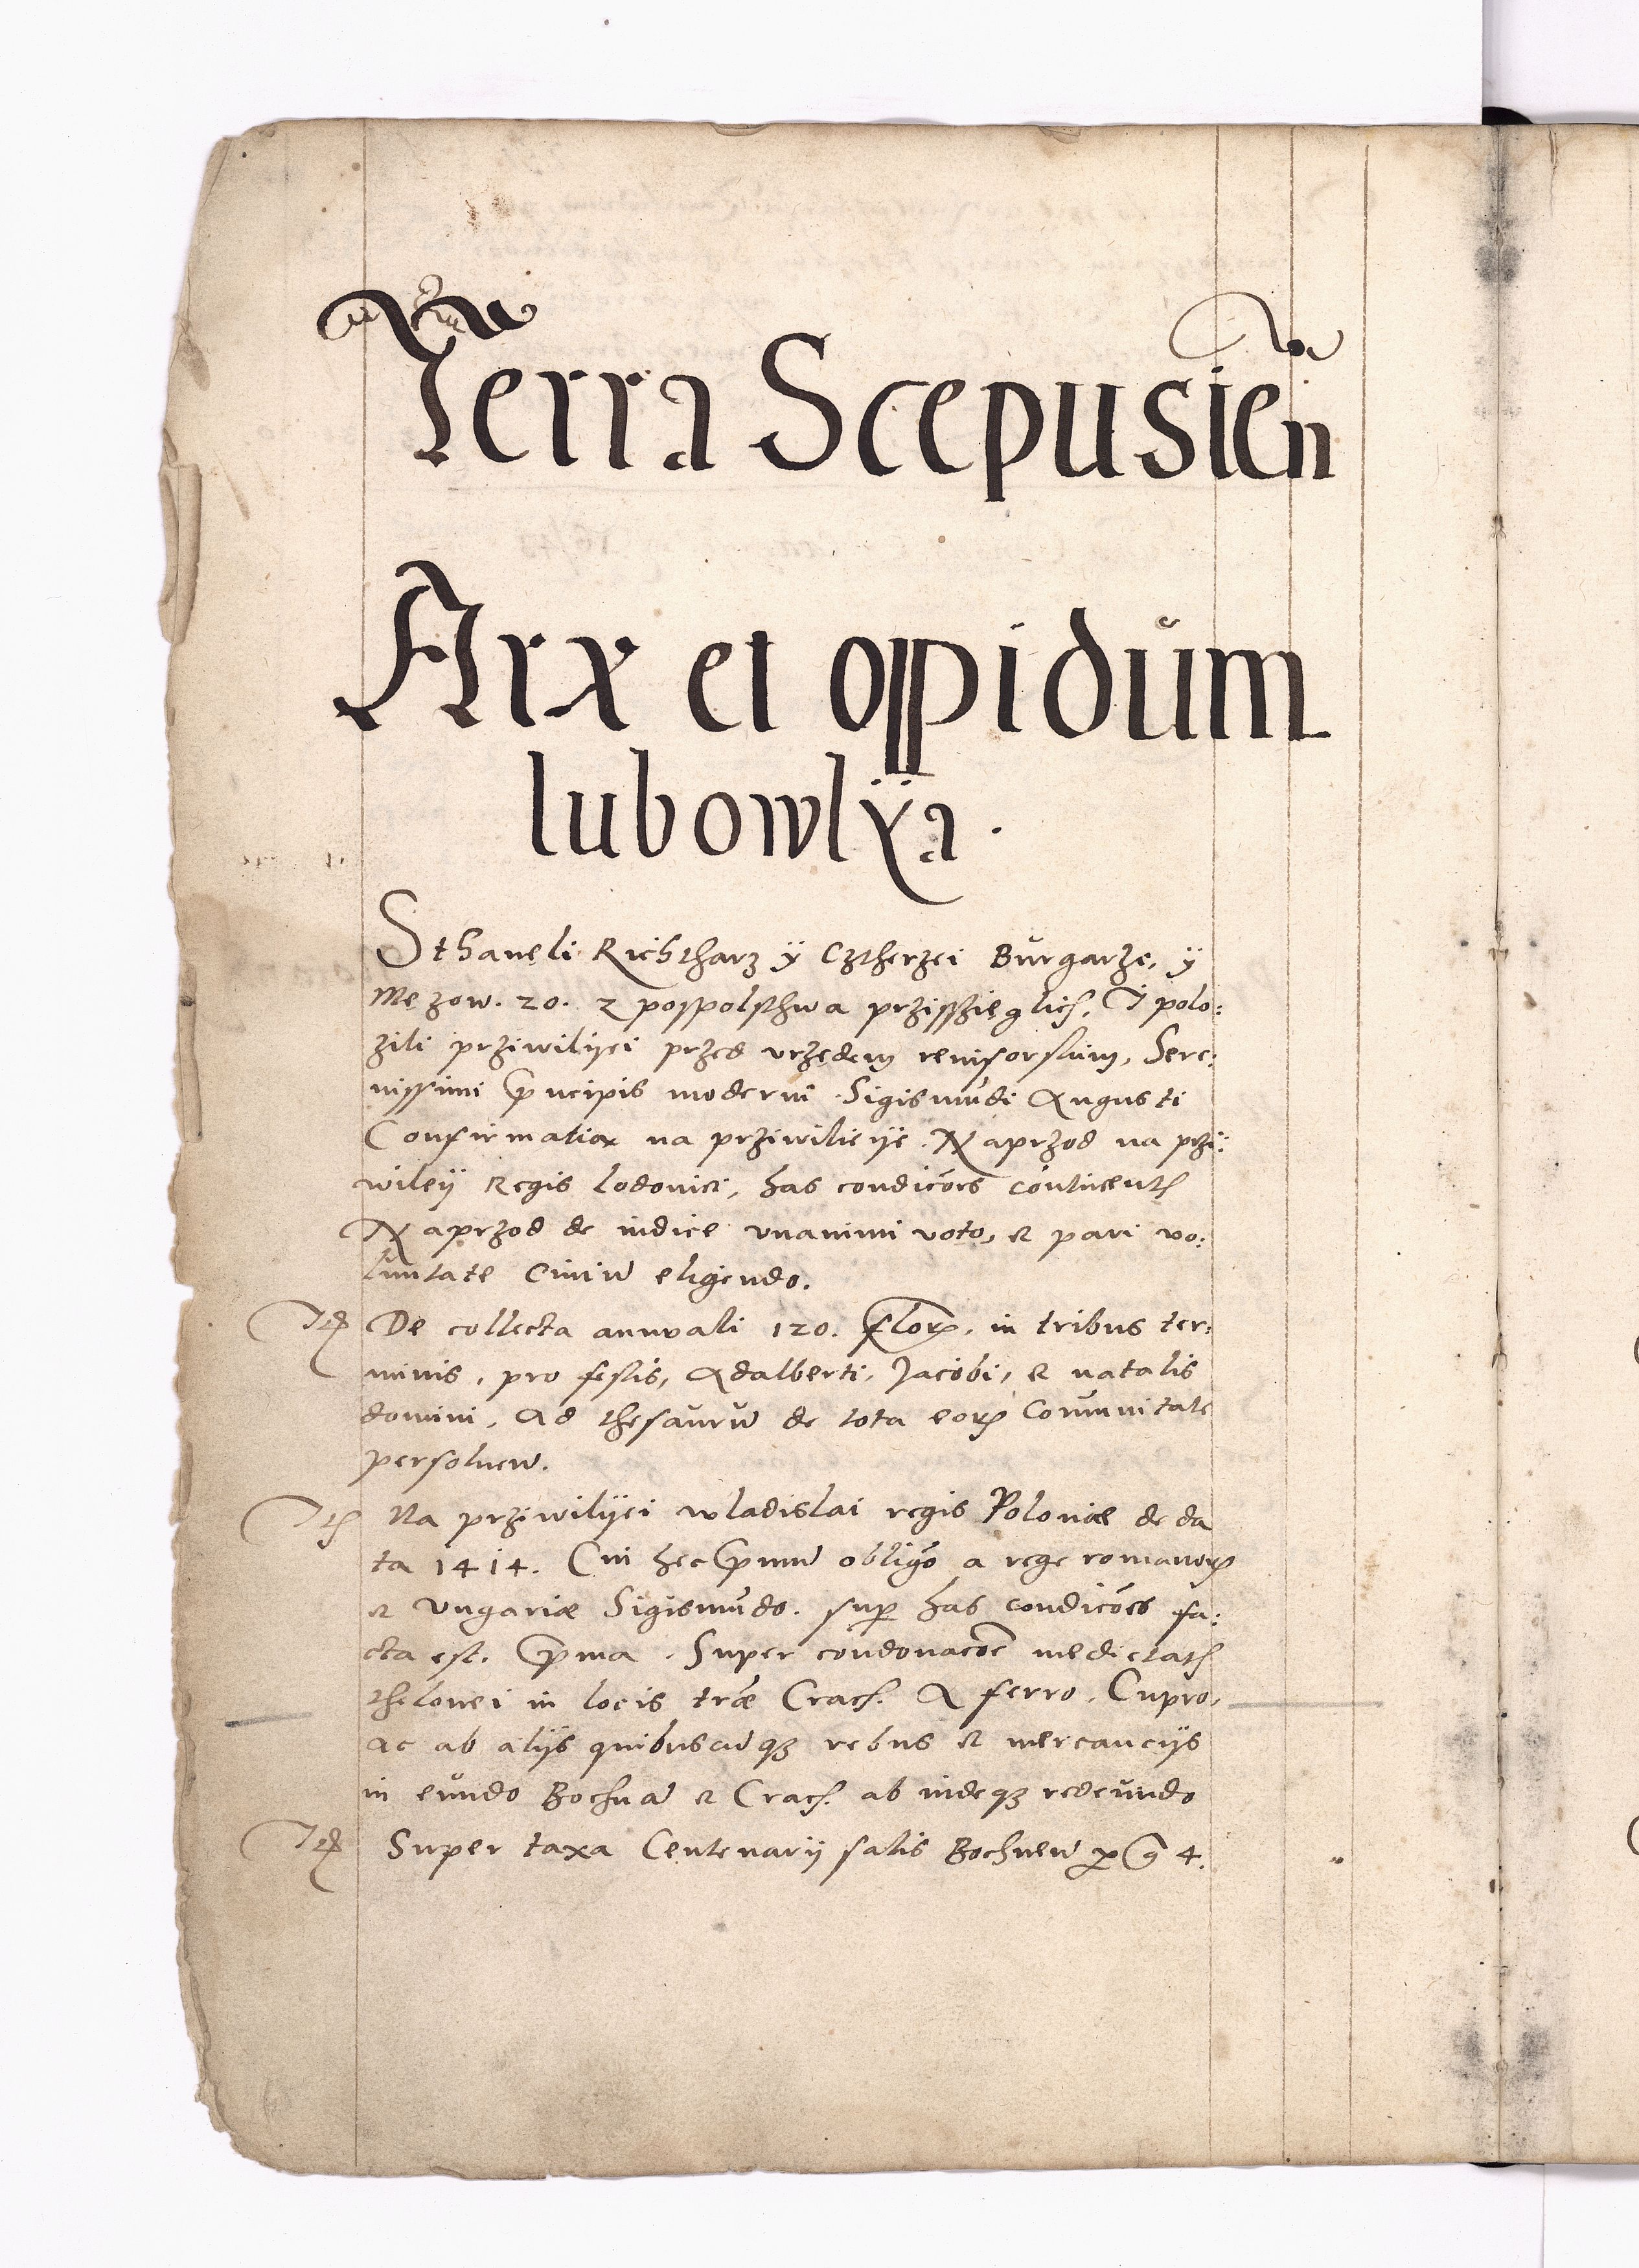 Terra Scepusień
Arx et oppidům
lubowlÿa.
Sthaneli Richtharz ÿ Cztherzei Bůrgarze, ÿ
Mezow. 20. z pospolsthwa przisszięglich, I polo:
zili prziwilyei przed vrzędem revisorskim, Sere:
nissimi Principis moderni Sigismůdi Augusti
Confirmatiox na prziwilieÿe. Naprzod na przi:
wileÿ Regis Lodovici, has condicões continentes
Naprzod de iudice vnanimi voto, et pari vo:
luntate Civiū eligendo.
Itē De collecta annuali 120. Florꝝ. in tribus ter:
minis, pro festis, Adalberti, Jacobi, et natalis
domini, Ad thesaurū de tota eorꝝ Comunitate
persoluen̄.
Itē Na prziwilÿei wladislai regis Poloniæ de da
ta 1414. Cui hec primū obligō a rege romanorꝝ
et Vngariæ Sigismůdo. sup has condicões fa:
cta est. Prima. Super condonacōe medietatis
thelonei in locis træ Crac. A ferro, Cupro,
ac ab alÿs quibuscūqꝫ rebus et mercancÿs
in eůndo Bochnā et Crac. ab indeqꝫ redeůndo
Itē Super taxa Centenarÿ salis Bochnen̄ per g 4.